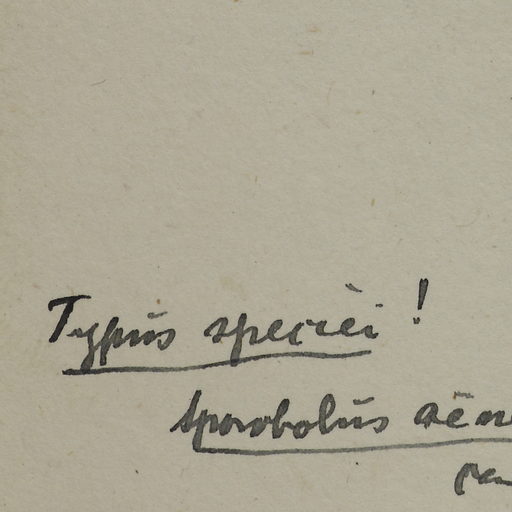 Typus speciei!
Sporobolus